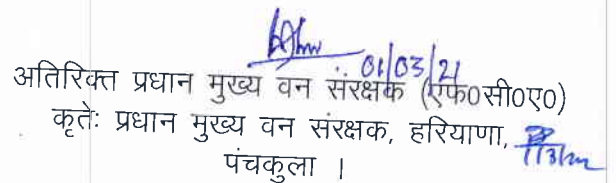 01/03/21
अतिरिक्त प्रधान मुख्य वन संरक्षक (एफ0सी0ए0)
कृतेः प्रधान मुख्य वन संरक्षक, हरियाणा,
पंचकुला ।